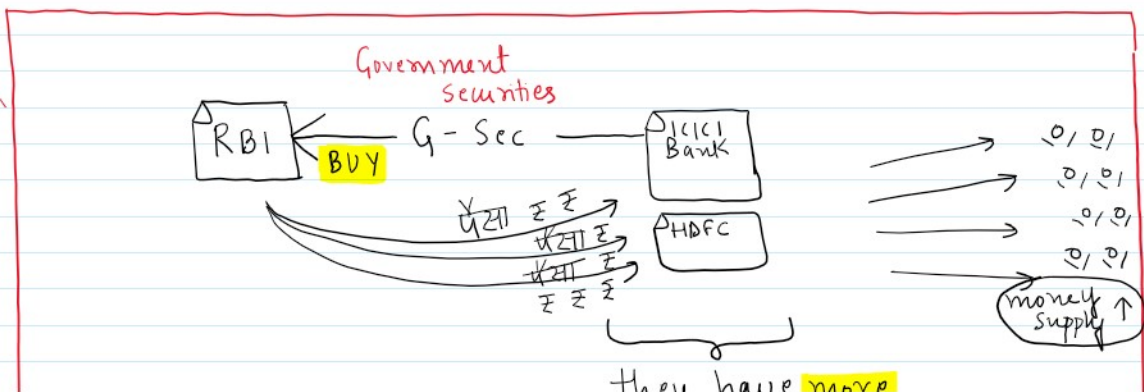 Government
Securities
RBI
G-Sec
BUY
ICICI
Bank
HDFC
पैसा ₹ ₹
पैसा ₹
पैसा ₹
₹ ₹ ₹
money
supply ↑
they have more